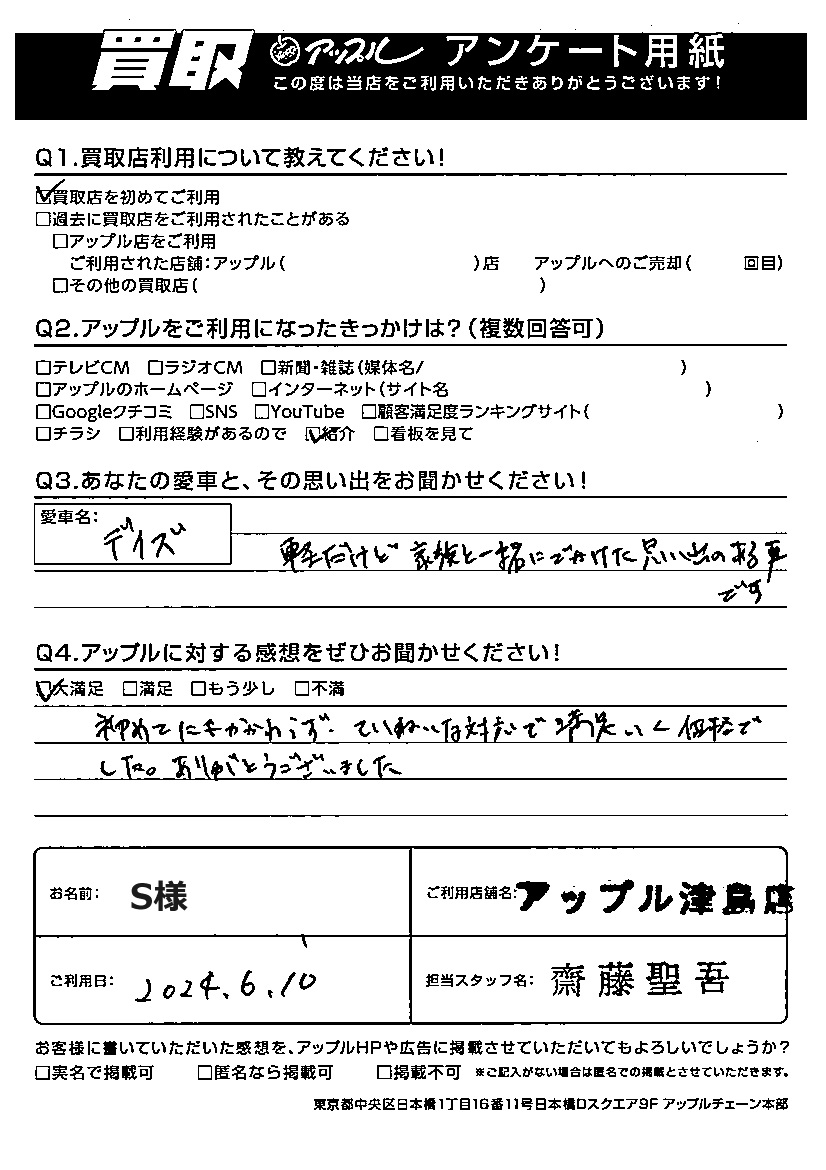 買取 アップル アンケート用紙
この度は当店をご利用いただきありがとうございます!
Q1.買取店利用について教えてください!
☑買取店を初めてご利用
□過去に買取店をご利用されたことがある
□アップル店をご利用
ご利用された店舗:アップル( )店 アップルへのご売却( 回目)
□その他の買取店( )
Q2.アップルをご利用になったきっかけは?(複数回答可)
□テレビCM □ラジオCM □新聞・雑誌(媒体名/ )
□アップルのホームページ □インターネット(サイト名 )
□Googleクチコミ □SNS □YouTube □顧客満足度ランキングサイト( )
□チラシ □利用経験があるので ☑紹介 □看板を見て
Q3.あなたの愛車と、その思い出をお聞かせください!
愛車名: デイズ
軽だけど 家族と一緒にでかけた思い出のある車
です
Q4.アップルに対する感想をぜひお聞かせください!
☑大満足 □満足 □もう少し □不満
初めてにもかかわらず、ていねいな対応で 満足いく価格で
した。ありがとうございました
お名前: S様
ご利用店舗名:アップル津島店
ご利用日: 2024.6.10
担当スタッフ名: 齋藤聖吾
お客様に書いていただいた感想を、アップルHPや広告に掲載させていただいてもよろしいでしょうか?
□実名で掲載可 □匿名なら掲載可 □掲載不可 ※ご記入がない場合は匿名での掲載とさせていただきます。
東京都中央区日本橋1丁目16番11号日本橋Dスクエア9F アップルチェーン本部